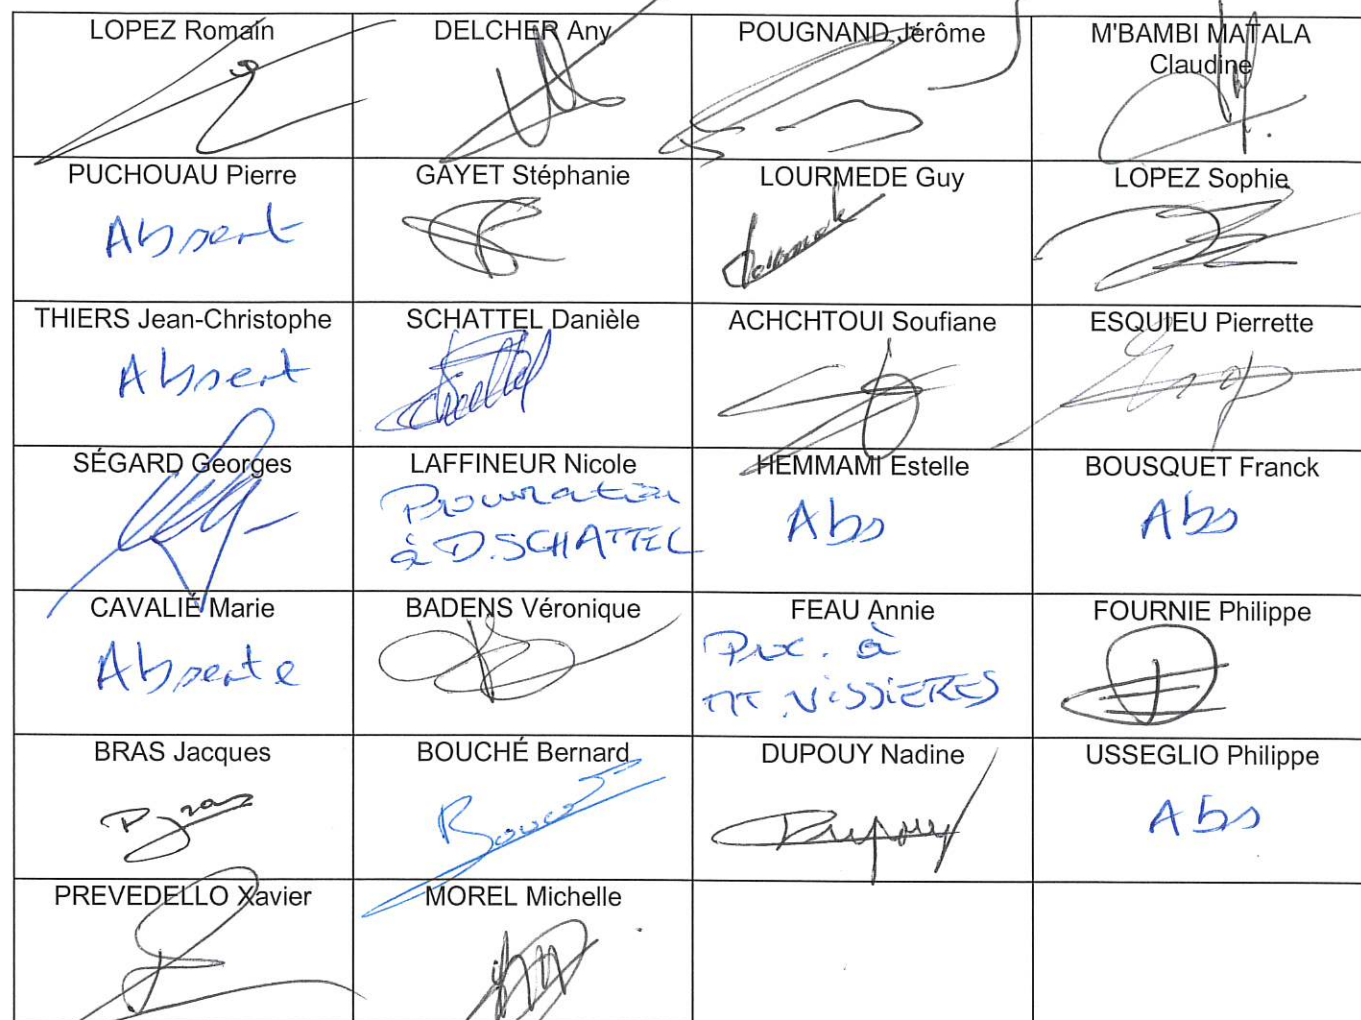 LOPEZ Romain
DELCHER Any
POUGNAND Jérôme
M'BAMBI MATALA
Claudine
PUCHOUAU Pierre
Absent
GAYET Stéphanie
LOURMEDE Guy
LOPEZ Sophie
THIERS Jean-Christophe
Absent
SCHATTEL Danièle
ACHCHTOUI Soufiane
ESQUIEU Pierrette
SÉGARD Georges
LAFFINEUR Nicole
Procuration
à D.SCHATTEL
HEMMAMI Estelle
Abs
BOUSQUET Franck
Abs
CAVALIÉ Marie
Absente
BADENS Véronique
FEAU Annie
à
VISSIERES
FOURNIE Philippe
BRAS Jacques
Bras
BOUCHÉ Bernard
DUPOUY Nadine
Dupouy
USSEGLIO Philippe
Abs
PREVEDELLO Xavier
MOREL Michelle